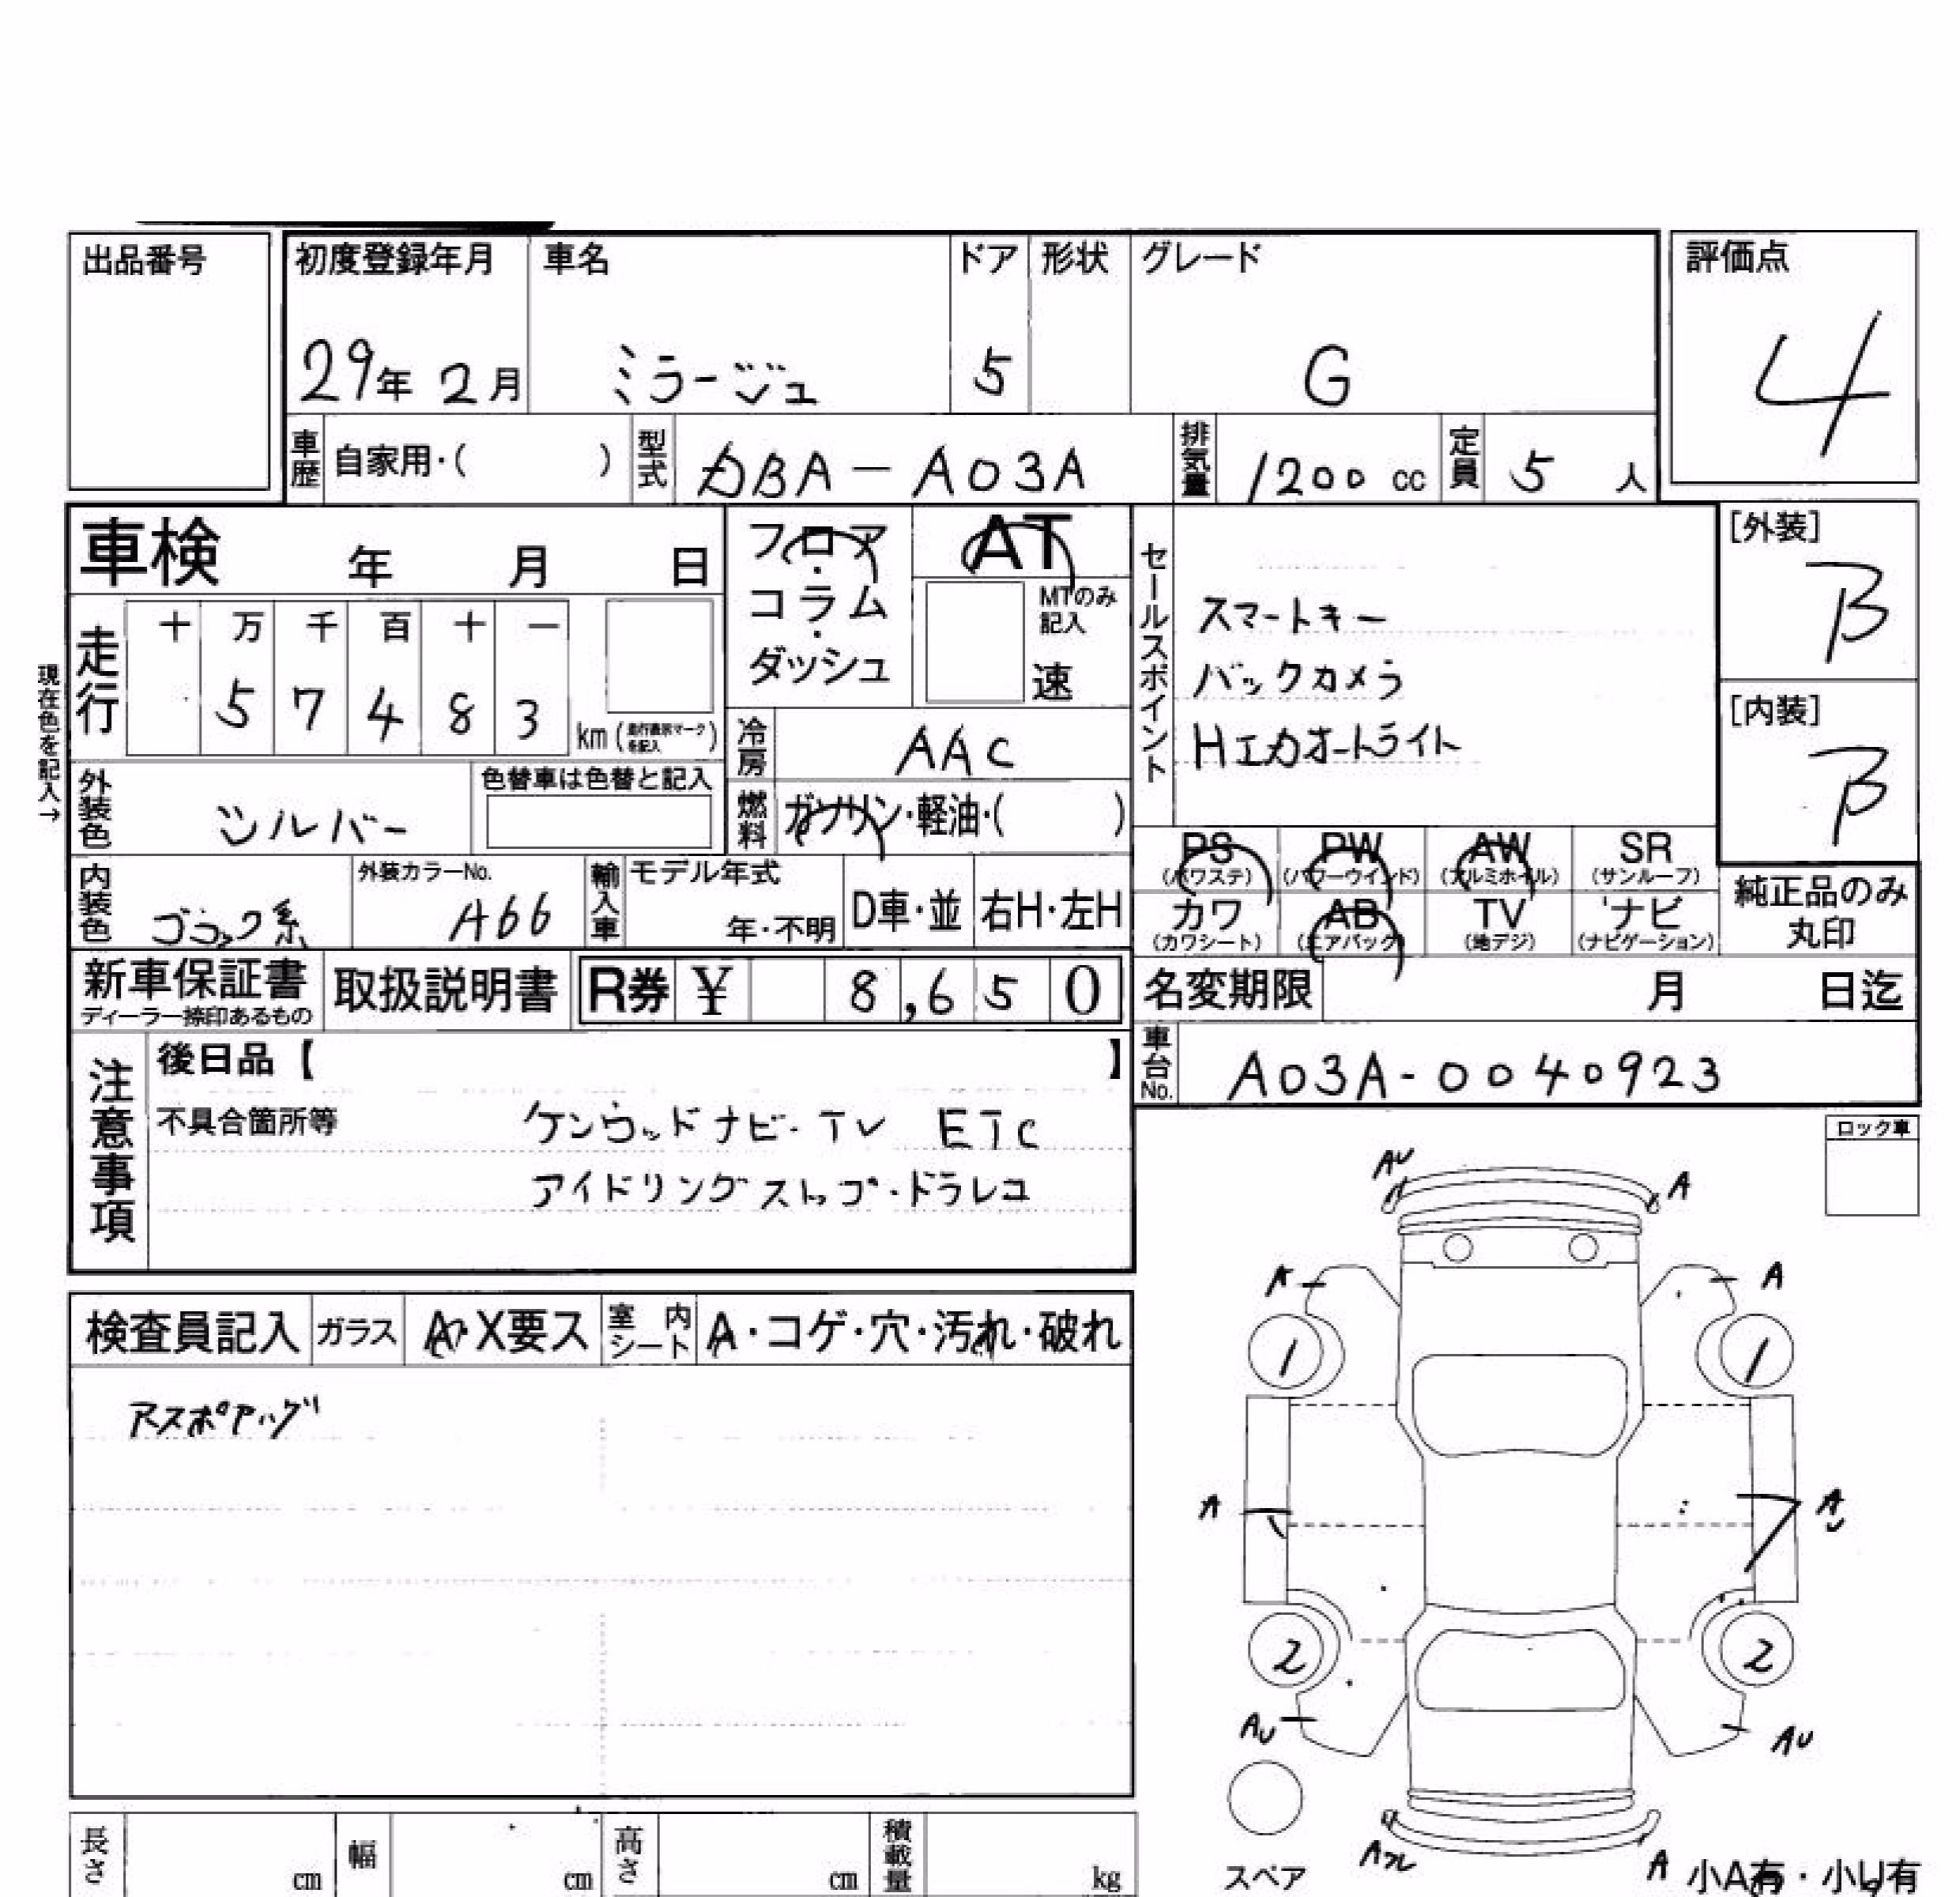 出品番号
初度登録年月 車名 ドア 形状 グレード
29年 2月 ミラージュ 5 G
評価点
4
車歴 自家用・( ) 型式 DBA-A03A 排気量 1200 cc 定員 5 人
車検 年 月 日
フロア・コラム・ダッシュ
AT
MTのみ記入
速
セールスポイント
スマートキー
バックカメラ
HエカオートライT
[外装]
B
[内装]
B
現在色を記入→
走行 十 万 千 百 十 一
5 7 4 8 3 km (走行表示マークを記入)
冷房 AAC
外装色 シルバー 色替車は色替と記入
燃料 ガソリン・軽油・( )
PS (パワステ) PW (パワーウインド) AW (アルミホイル) SR (サンルーフ)
カワ (カワシート) AB (エアバック) TV (地デジ) ナビ (ナビゲーション)
純正品のみ丸印
内装色 ブラック系 外装カラーNo. A66 輸入車 モデル年式 年・不明 D車・並 右H・左H
新車保証書 ディーラー捺印あるもの 取扱説明書 R券 ¥ 8,650
名変期限 月 日迄
車台No. A03A-0040923
注意事項
後日品【 】
不具合箇所等 ケンウッドナビ・TV ETC
アイドリングストップ・ドラレコ
ロック車
検査員記入 ガラス A・X要ス 室内シート A・コゲ・穴・汚れ・破れ
AU A
A A
1 1
A A
2 2
AU AU
A
スペア
小A有・小U有
長さ cm 幅 cm 高さ cm 積載量 kg